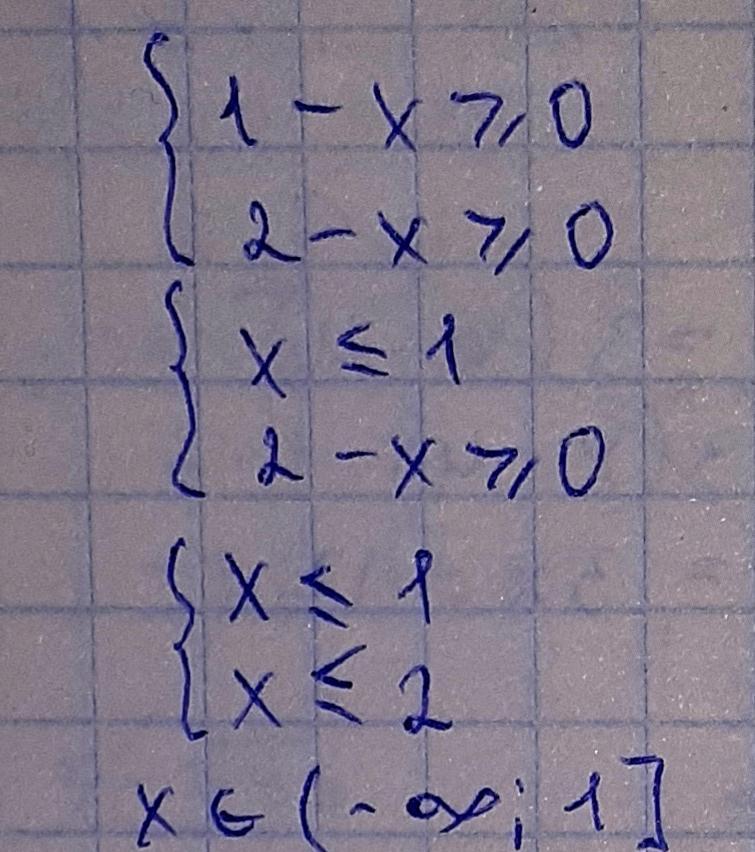 { 1 - x ⩾ 0
2 - x ⩾ 0
{ x ≤ 1
2 - x ⩾ 0
{ x ≤ 1
x ≤ 2
x ∈ (-∞; 1]